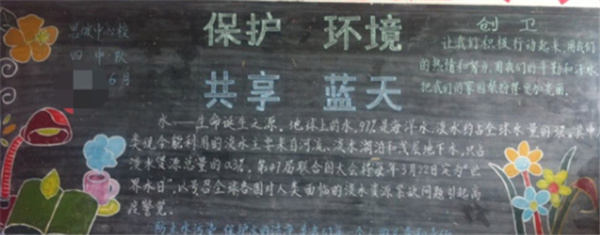 保护 环境
共享 蓝天
中心校
四中队
6月
创卫
让我们积极行动起来，用我们
的热情和努力，用我们的辛勤和汗水
把我们的家园装扮得更加美丽。
水——生命诞生之源。地球上的水，97%是海洋水，淡水约占全球水量的3%。其中人
类现今能利用的淡水主要来自河流、淡水湖泊和浅层地下水，只占
淡水资源总量的0.3%。第47届联合国大会将每年3月22日定为“世
界水日”，以号召全球各国对人类面临的淡水资源紧缺问题引起高
度警觉。